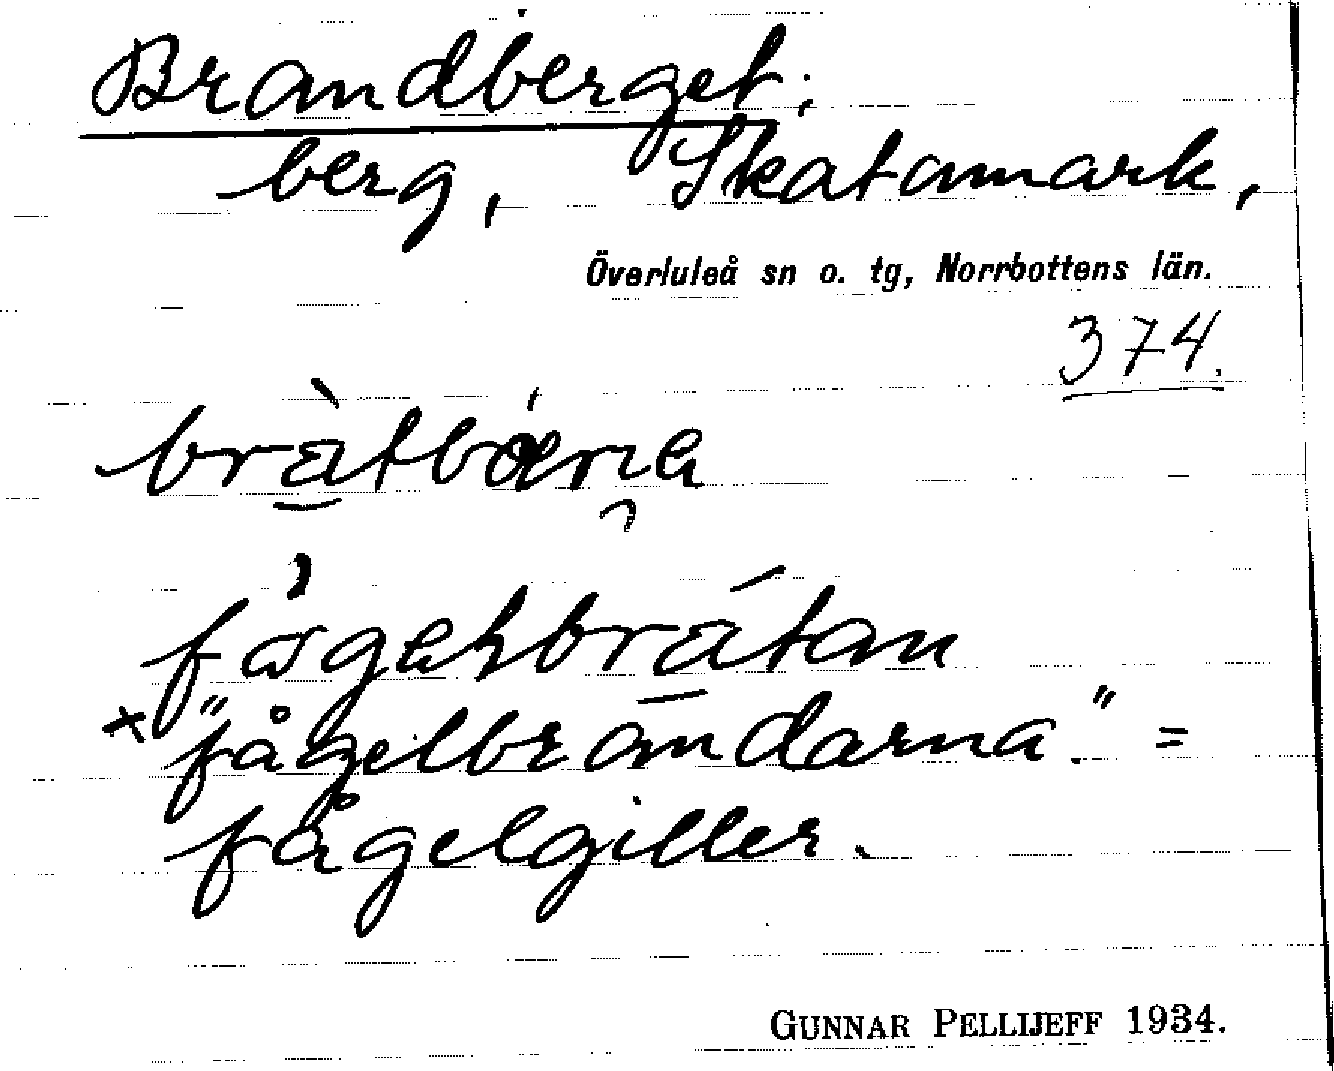 Brandberget;
berg, Skatamark,
Överluleå sn o. tg, Norrbottens län.
374.
bràtbǽrıɐ
fågɐlbrátan
* "fågelbrandarna." =
fågelgiller.
GUNNAR PELLIJEFF 1934.